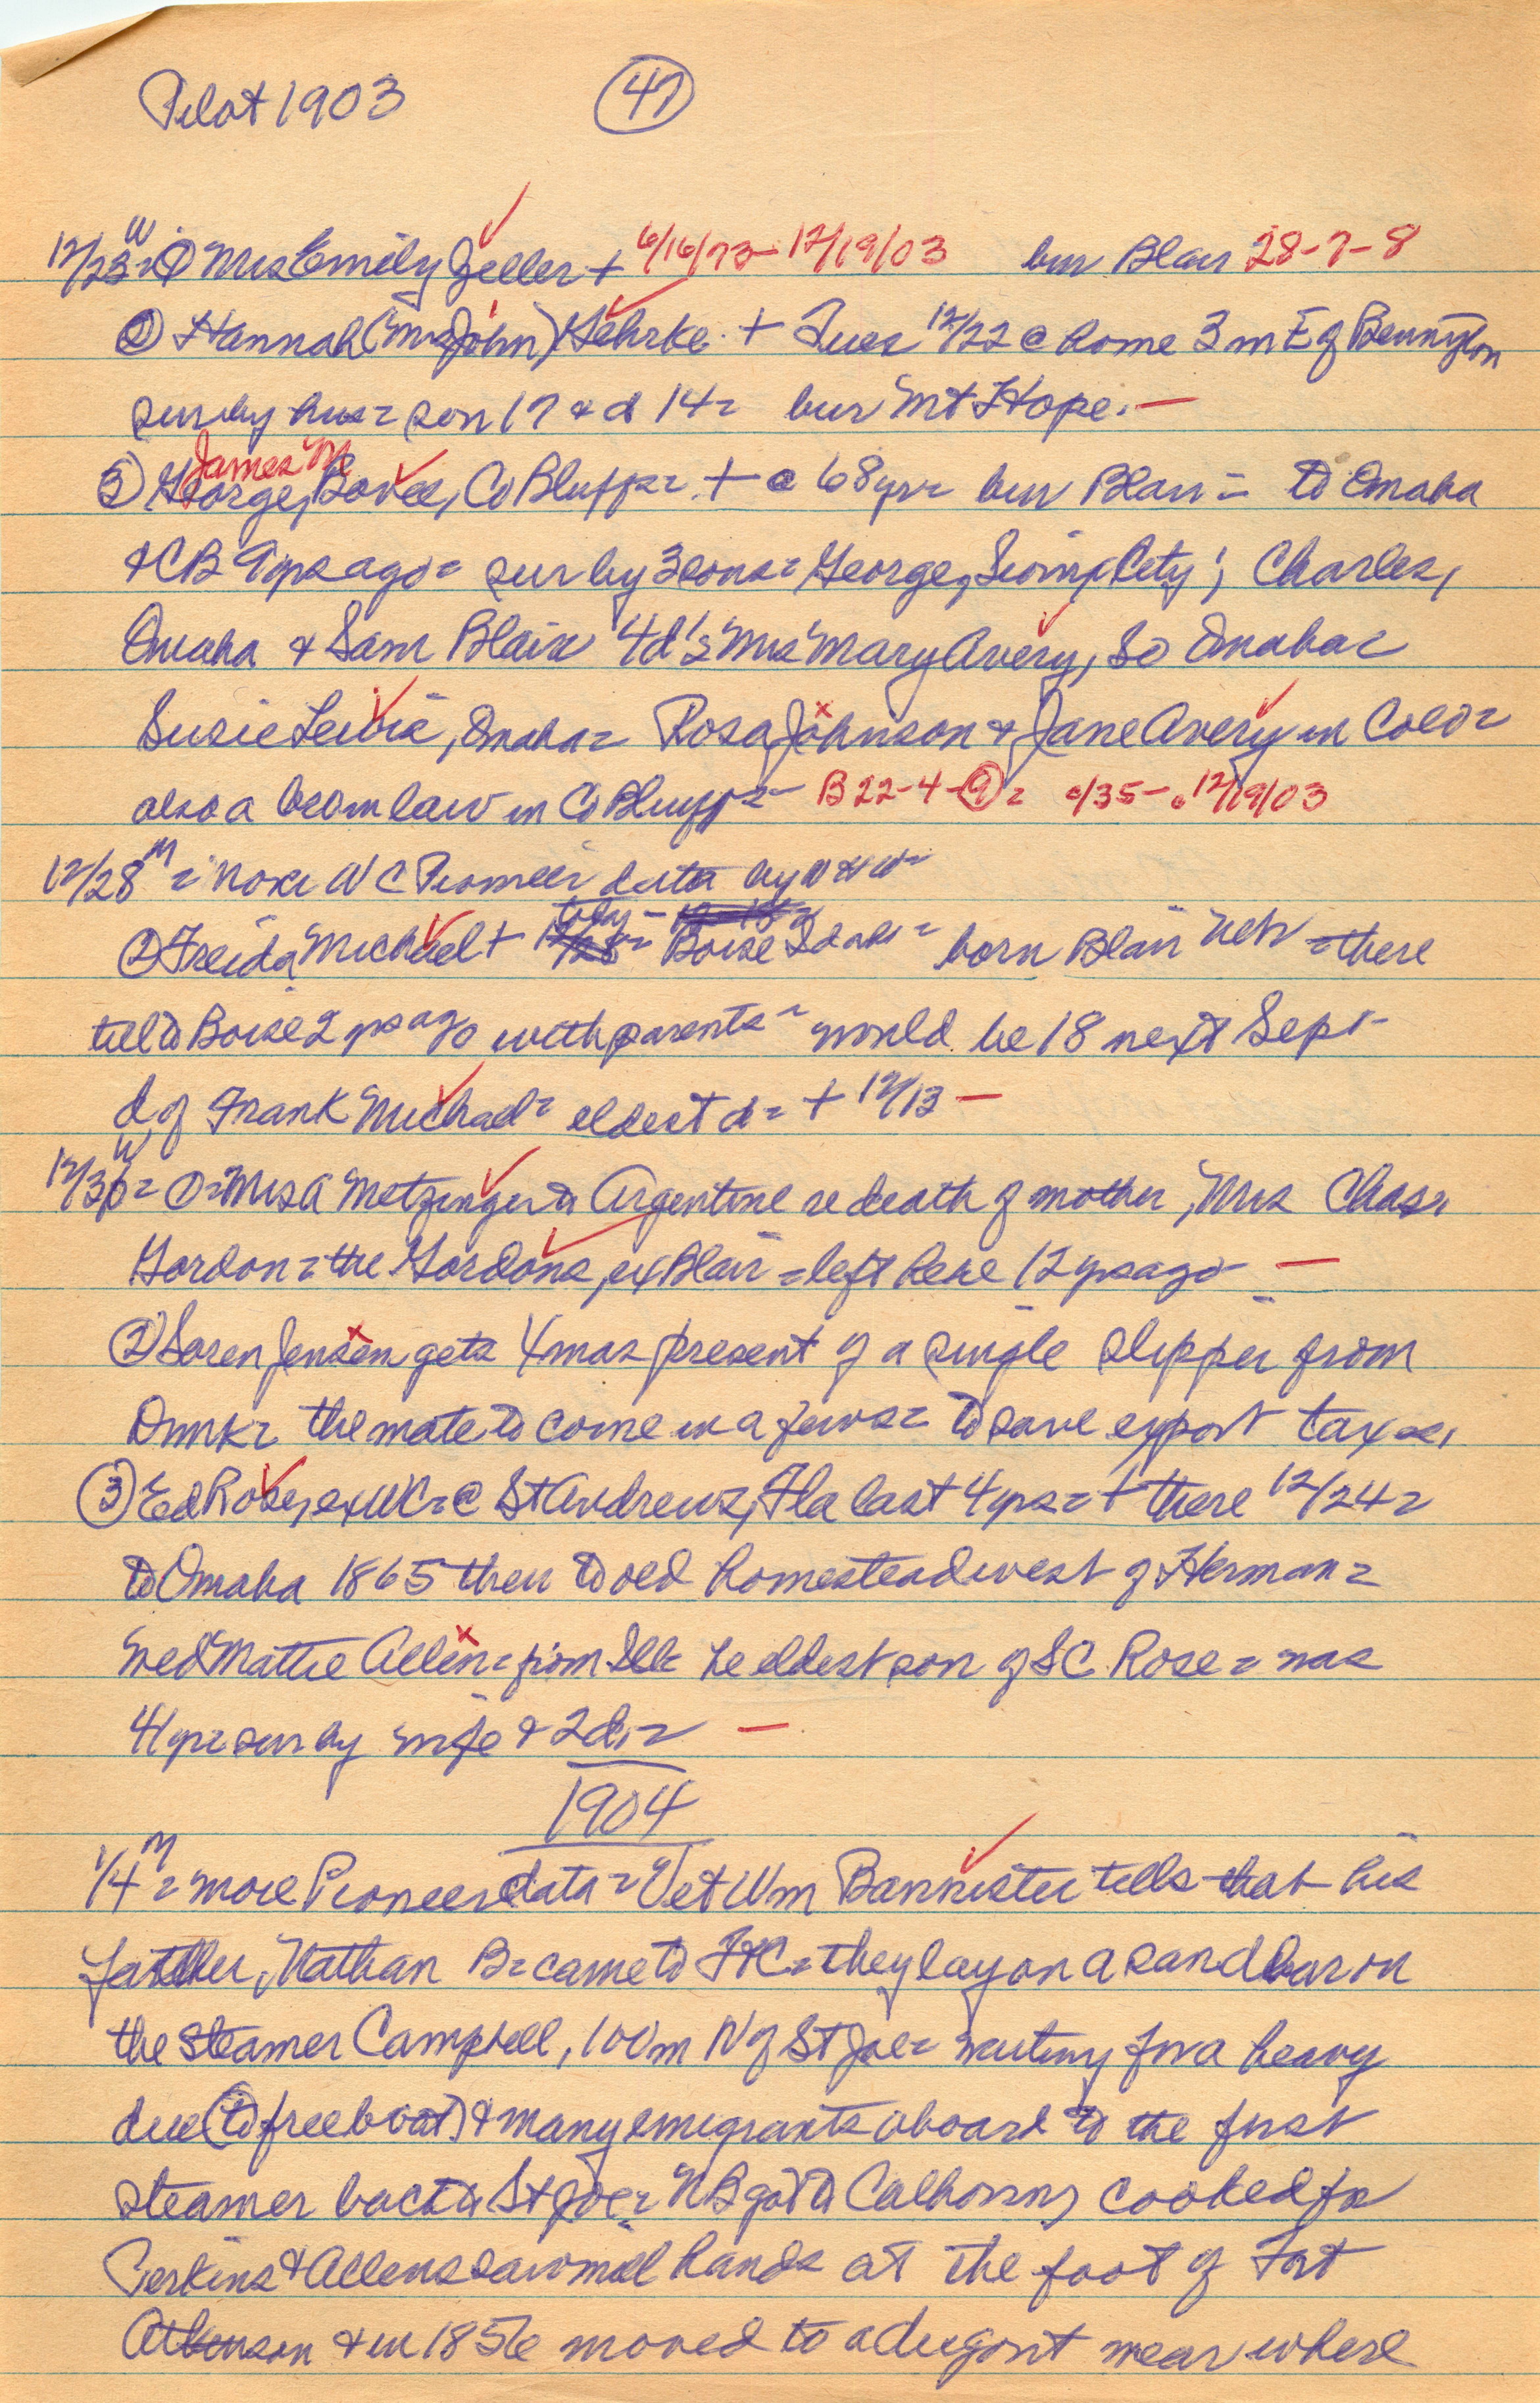 Pilot 1903 47
12/23 W = ① Mrs Emily Zeller + 6/16/73 - 12/19/03 bur Blair 28-7-8
② Hannah (Mrs John) Gehrke + Tues 12/22 @ home 3 m E of Bennington
sur by hus = son 17 & d 14 = bur Mt Hope. —
James M
③ George, Bovee, Co Bluffs = + @ 68 yrs = bur Blair = to Omaha
& CB 9 yrs ago = sur by 3 sons = George, Sioux City; Charles,
Omaha & Sam Blair 4 d's Mrs Mary Avery, So Omaha =
Susie Lewis, Omaha = Rosa Johnson & Jane Avery in Colo =
also a bro in law in Co Bluffs = B 22-4-⑨ = c/35 - c 12/19/03
12/28 M = more W C Pioneer data by
② Freida Michael + Boise Idaho = born Blair Neb = there
till to Boise 2 yrs ago with parents = would be 18 next Sept -
d of Frank Michael = eldest d = + 12/13 —
12/30 W = ① = Mrs A Metzinger to Argentine re death of mother, Mrs Chas.
Gordon = the Gordons, ex Blair = left here 12 yrs ago —
② Soren Jensen gets Xmas present of a single slipper from
Dnmk = the mate to come in a few = to save export taxes,
③ Ed Rose, ex WC = @ St Andrews, Fla last 4 yrs = + there 12/24 =
to Omaha 1865 then to old homestead west of Herman =
wed Mattie Allen = from Ill = he eldest son of SC Rose = was
41 yr = sur by wife & 2 d. = —
1904
1/4 M = more Pioneer data = Vet Wm Bannister tells that his
father, Nathan B = came to Ft C = they lay on a sand bar on
the steamer Campbell, 100 m N of St Joe = waiting for a heavy
due (to free boat) & many emigrants aboard to the first
steamer back to St Joe = NB got to Calhoun, cooked for
Perkins & Allens sawmill hands at the foot of Fort
Atkinson & in 1856 moved to a dugout near where